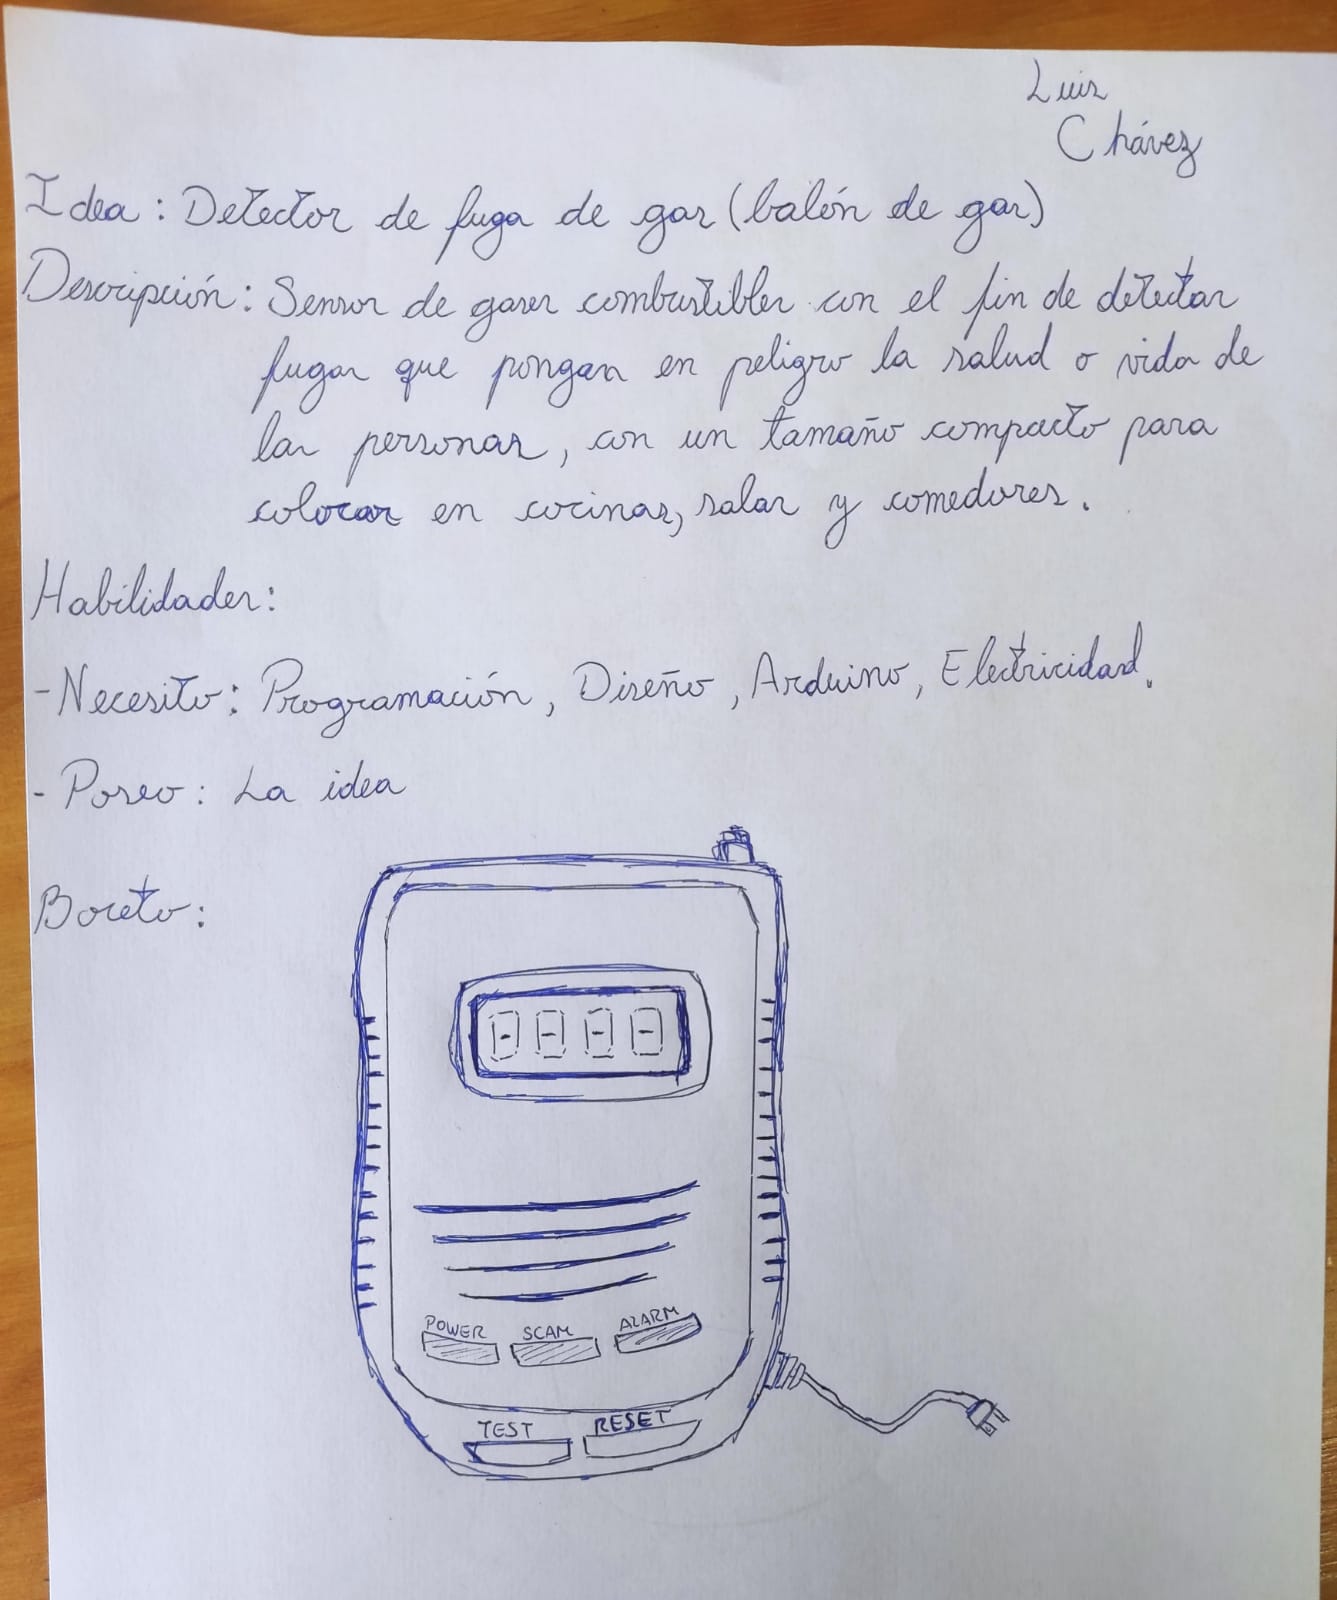 Luis
Chávez
Idea: Detector de fuga de gas (balón de gas)
Descripción: Sensor de gases combustibles con el fin de detectar
fugas que pongan en peligro la salud o vida de
las personas, con un tamaño compacto para
colocar en cocinas, salas y comedores.
Habilidades:
- Necesito: Programación, Diseño, Arduino, Electricidad.
- Poseo: La idea
Boceto:
POWER SCAM ALARM
TEST RESET